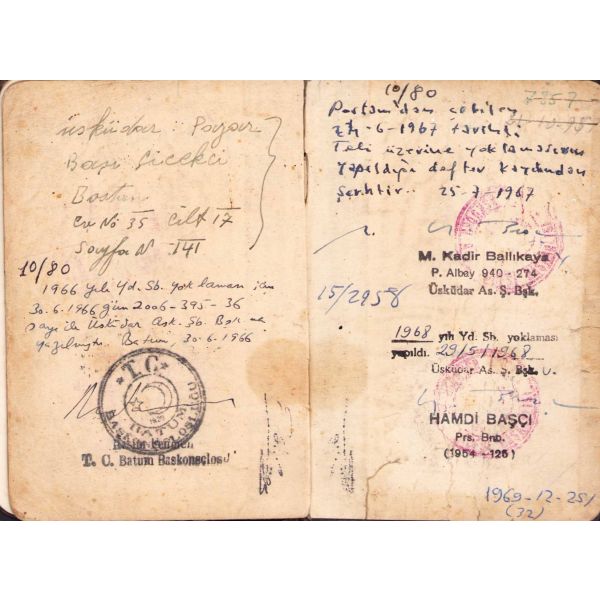 Üsküdar Pazar
Başı Çicekci
Bostan
Ev No 35 Cilt 17
Sayfa N. 141
10/80
1966 yılı Yd. Sb. yoklaması için
30.6.1966 gün 2006-395-36
sayı ile Üsküdar Ask. Şb. Bşk.na
yazılmıştır. Batum, 30.6.1966
T.C.
BATUM
T. C. Batum Başkonsolosu
10/80
7357
-6-1967 tarihli
Tel üzerine yoklamasının
yapıldığı defter kaydından
Şerhtir. 25-7-1967
M. Kadir Ballıkaya
P. Albay 940 - 274
Üsküdar As. Ş. Bşk.
15/2958
1968 yılı Yd. Sb. yoklaması
yapıldı. 29/5/1968
Üsküdar As. Ş. Bşk.
HAMDİ BAŞÇI
Prs. Bnb.
(1954 - 126)
1969-12-251
(32)